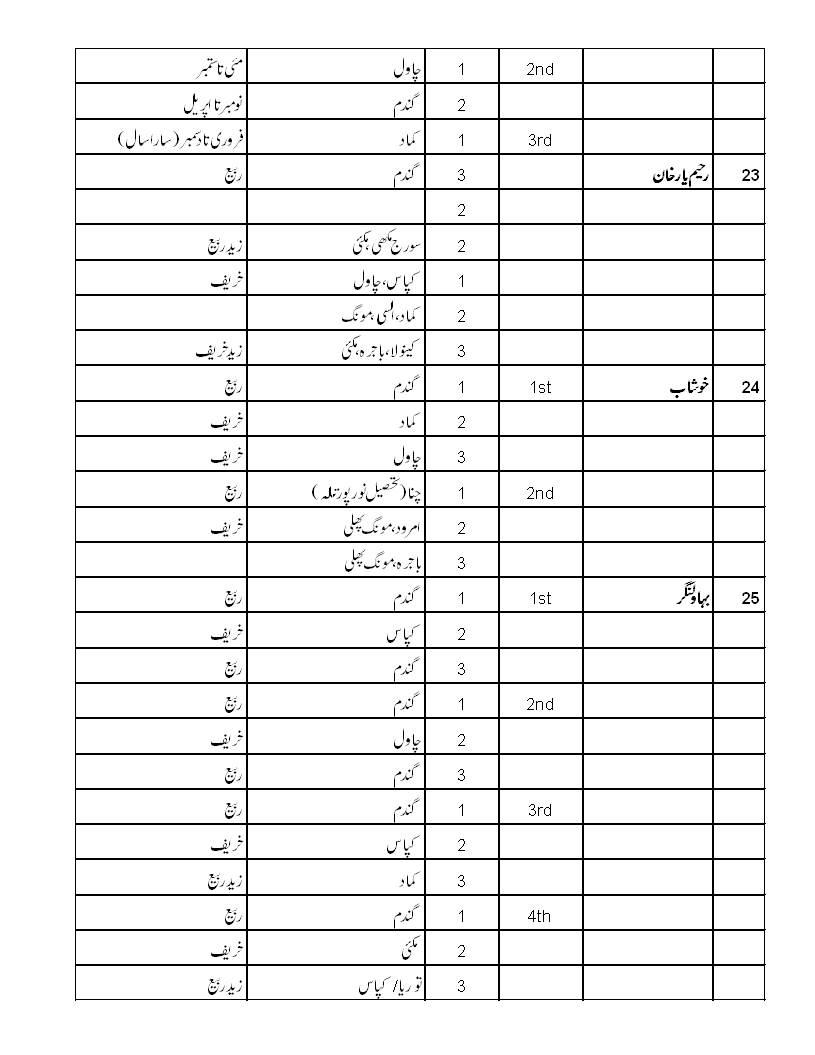 2nd 1 چاول مئی تا ستمبر
2 گندم نومبر تا اپریل
3rd 1 کماد فروری تا دسمبر (سارا سال)
23 رحیم یار خان 3 گندم ربیع
2
2 سورج مکھی، مکئی زید ربیع
1 کپاس، چاول خریف
2 کماد، السی، مونگ
3 کینولا، باجرہ، مکئی زید خریف
24 خوشاب 1st 1 گندم ربیع
2 کماد خریف
3 چاول خریف
2nd 1 چنا (تحصیل نور پور تھلہ) ربیع
2 امرود، مونگ پھلی خریف
3 باجرہ، مونگ پھلی
25 بہاولنگر 1st 1 گندم ربیع
2 کپاس خریف
3 گندم ربیع
2nd 1 گندم ربیع
2 چاول خریف
3 گندم ربیع
3rd 1 گندم ربیع
2 کپاس خریف
3 کماد زید ربیع
4th 1 گندم ربیع
2 مکئی خریف
3 توریا/ کپاس زید ربیع